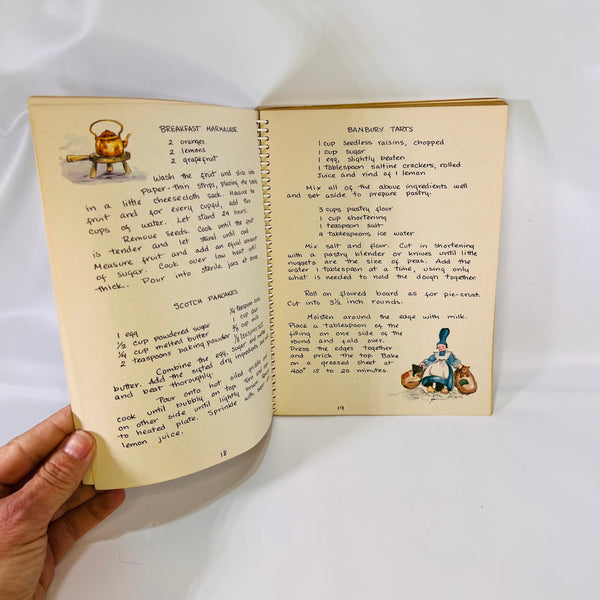 BREAKFAST MARMALADE
2 oranges
2 lemons
2 grapefruit
Wash the fruit and slice into
paper-thin strips, placing the seeds
in a little cheesecloth sack. Measure
fruit and for every cupful, add two
cups of water. Let stand 24 hours.
Remove seeds. Cook until the fruit
is tender and let stand until cool.
Measure fruit and add an equal amount
of sugar. Cook over low heat until
thick. Pour into sterile jars at once.
SCOTCH PANCAKES
1 egg
1/2 cup powdered sugar
1/4 cup melted butter
2 teaspoons baking powder
1/4 teaspoon soda
1 cup flour
3/4 cup milk
1/2 teaspoon salt
Combine the egg, sugar and
butter. Add the sifted dry ingredients
and beat thoroughly.
Pour onto hot oiled griddle
cook until bubbly on top. Turn and
on other side until lightly brown
to heated plate. Sprinkle with
lemon juice.
18
BANBURY TARTS
1 cup seedless raisins, chopped
1 cup sugar
1 egg, slightly beaten
1 tablespoon saltine crackers, rolled
Juice and rind of 1 lemon
Mix all of the above ingredients well
and set aside to prepare pastry.
3 cups pastry flour
1 cup shortening
1 teaspoon salt
4 tablespoons ice water
Mix salt and flour. Cut in shortening
with a pastry blender or knives until little
nuggets are the size of peas. Add the
water 1 tablespoon at a time, using only
what is needed to hold the dough together.
Roll on floured board as for pie-crust.
Cut into 3 1/2 inch rounds.
Moisten around the edge with milk.
Place a tablespoon of the
filling on one side of the
round and fold over.
Press the edges together
and prick the top. Bake
on a greased sheet at
400° 15 to 20 minutes.
19